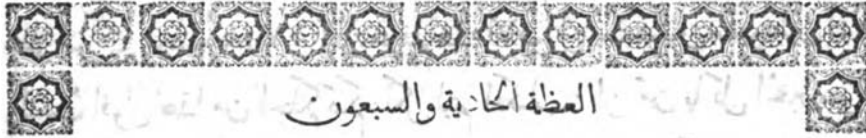 العظة الحادية والسبعون